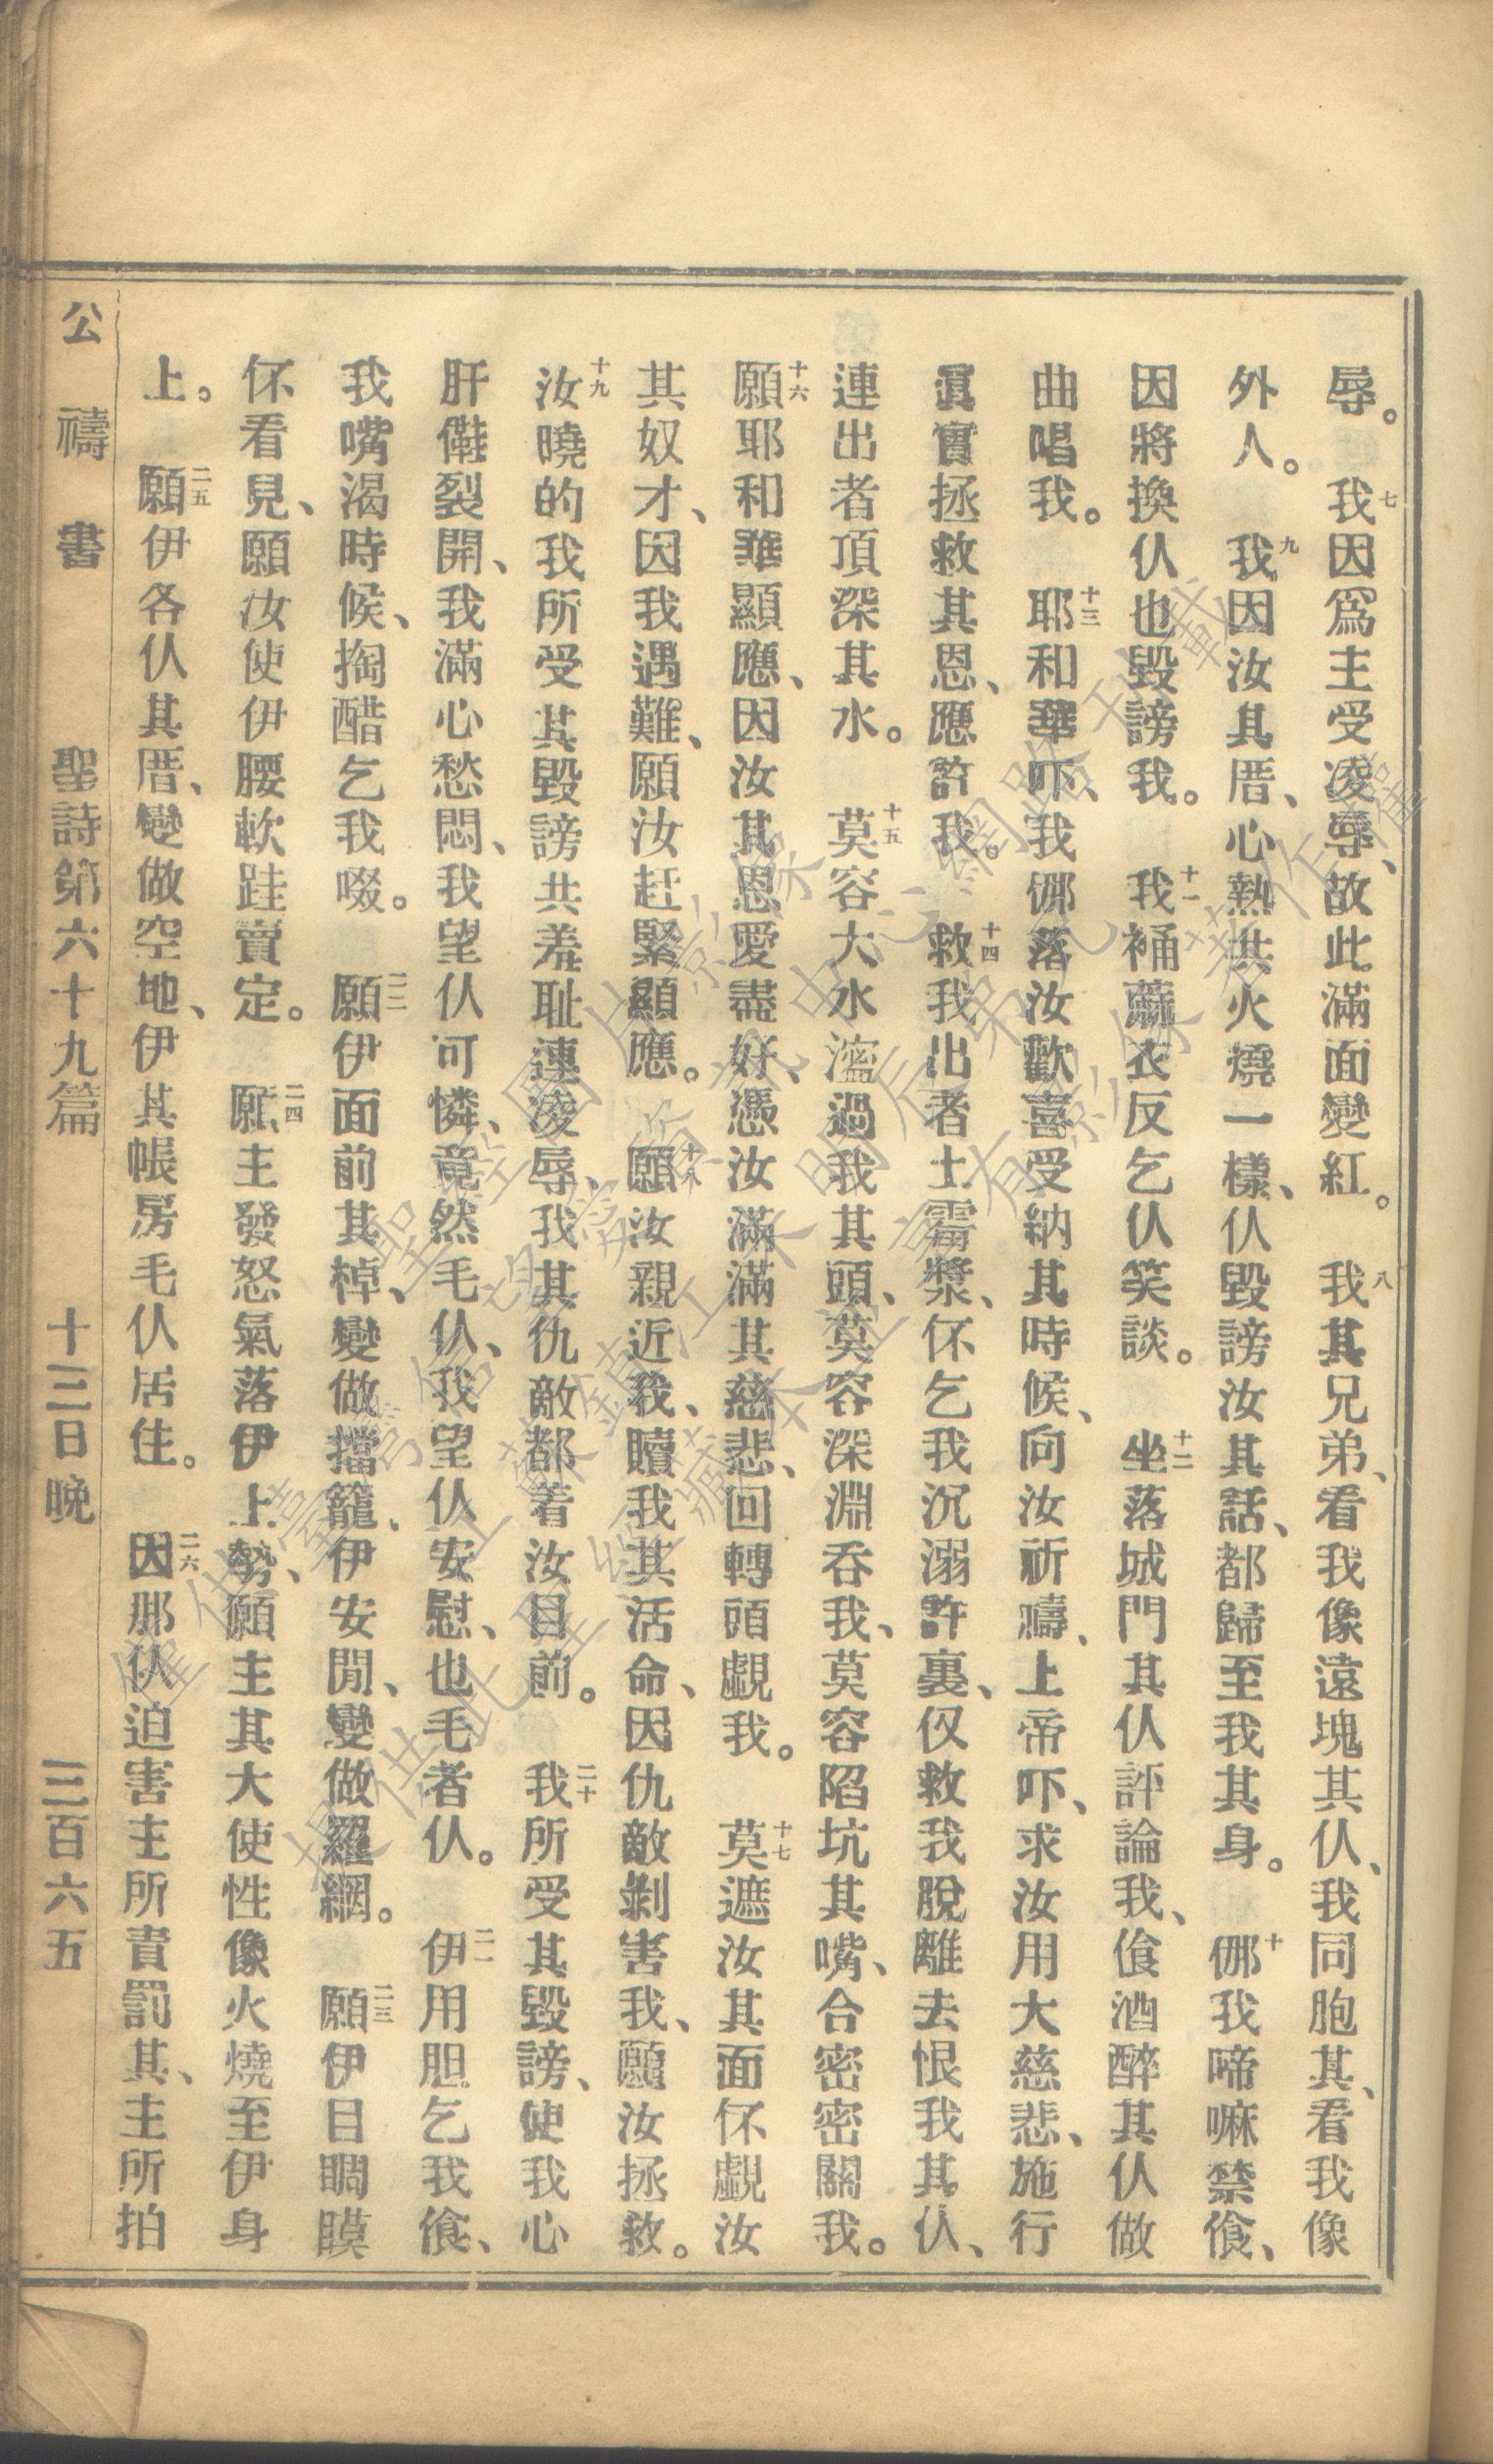 辱。七我因爲主受凌辱、故此滿面變紅。八我其兄弟、看我像遠塊其仈、我同胞其、看我像
外人。九我因汝其厝、心熱共火燒一樣、仈毀謗汝其話、都歸至我其身。十㑚我啼嘛禁飧、
因將換仈也毀謗我。十一我補蔴衣反乞仈笑談。十二坐落城門其仈評論我、食酒醉其仈做
曲唱我。十三耶和華吓、我㑚落汝歡喜受納其時候、向汝祈禱、上帝吓、求汝用大慈悲、施行
眞實拯救其恩、應許我。十四救我出者土霉漿、伓乞我沉溺許裏、仅救我脫離去恨我其仈、
連出者頂深其水。十五莫容大水濫過我其頭、莫容深淵吞我、莫容陷坑其嘴、合密密關我。
十六願耶和華顯應、因汝其恩愛盡好、憑汝滿滿其慈悲、回轉頭覷我。十七莫遮汝其面伓覷汝
其奴才、因我遇難、願汝赶緊顯應。十八願汝親近我、贖我其活命、因仇敵剝害我、願汝拯救。
十九汝曉的我所受其毀謗共羞恥連凌辱、我其仇敵都着汝目前。二十我所受其毀謗、使我心
肝儺裂開、我滿心愁悶、我望仈可憐、竟然毛仈、我望仈安慰、也毛者仈。二一伊用胆乞我飧、
我嘴渴時候、掏醋乞我啜。二二願伊面前其棹、變做擋籠、伊安閒、變做羅網。二三願伊目睭瞙
伓看見、願汝使伊腰軟跬賣定。二四願主發怒氣落伊上勢、願主其大使性像火燒至伊身
上。二五願伊各仈其厝、變做空地、伊其帳房毛仈居住。二六因那仈迫害主所責罰其、主所拍
公禱書 聖詩第六十九篇 十三日晚 三百六五